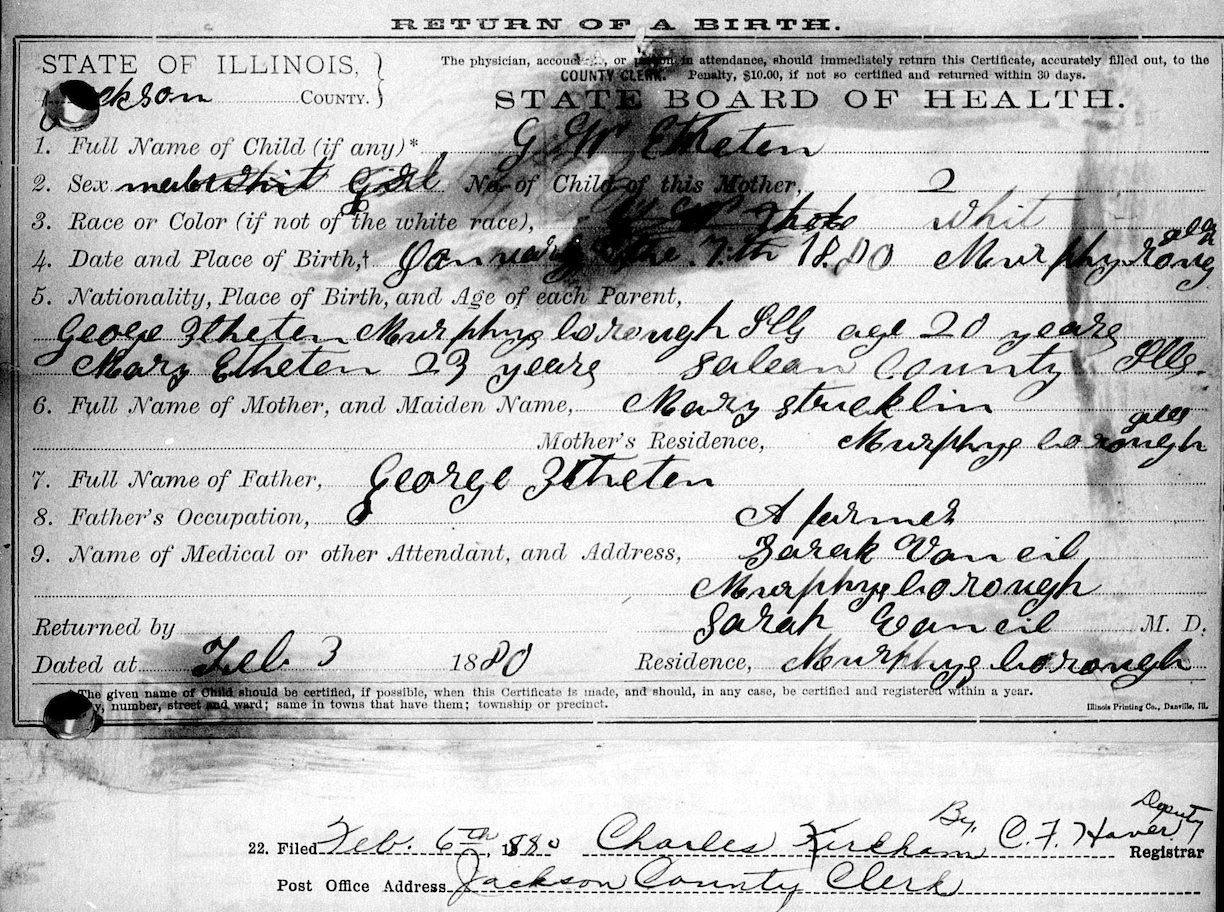 RETURN OF A BIRTH.
STATE OF ILLINOIS,
The physician, in attendance, should immediately return this Certificate, accurately filled out, to the
COUNTY CLERK. Penalty, $10.00, if not so certified and returned within 30 days.
ckson COUNTY.
STATE BOARD OF HEALTH.
1. Full Name of Child (if any)* G W Etheten
2. Sex Girl No of Child of this Mother, 2
3. Race or Color (if not of the white race), Whit
4. Date and Place of Birth,† January the 7th 1880 Murphy
5. Nationality, Place of Birth, and Age of each Parent,
George Etheten Murphysborough Ills age 20 years
Mary Etheten 23 years Salean County Ills.
6. Full Name of Mother, and Maiden Name, Mary Stucklin
Mother's Residence, Murphysborough
7. Full Name of Father, George Etheten
8. Father's Occupation, A farmer
9. Name of Medical or other Attendant, and Address, Sarah Vancil
Murphysborough
Returned by Sarah Vancil M. D.
Dated at Feb 3 1880 Residence, Murphysborough
The given name of Child should be certified, if possible, when this Certificate is made, and should, in any case, be certified and registered within a year.
number, street and ward; same in towns that have them; township or precinct.
Illinois Printing Co., Danville, Ill.
22. Filed Feb. 6th, 1880 Charles Kirkham By C. F. Haver Deputy Registrar
Post Office Address Jackson County Clerk